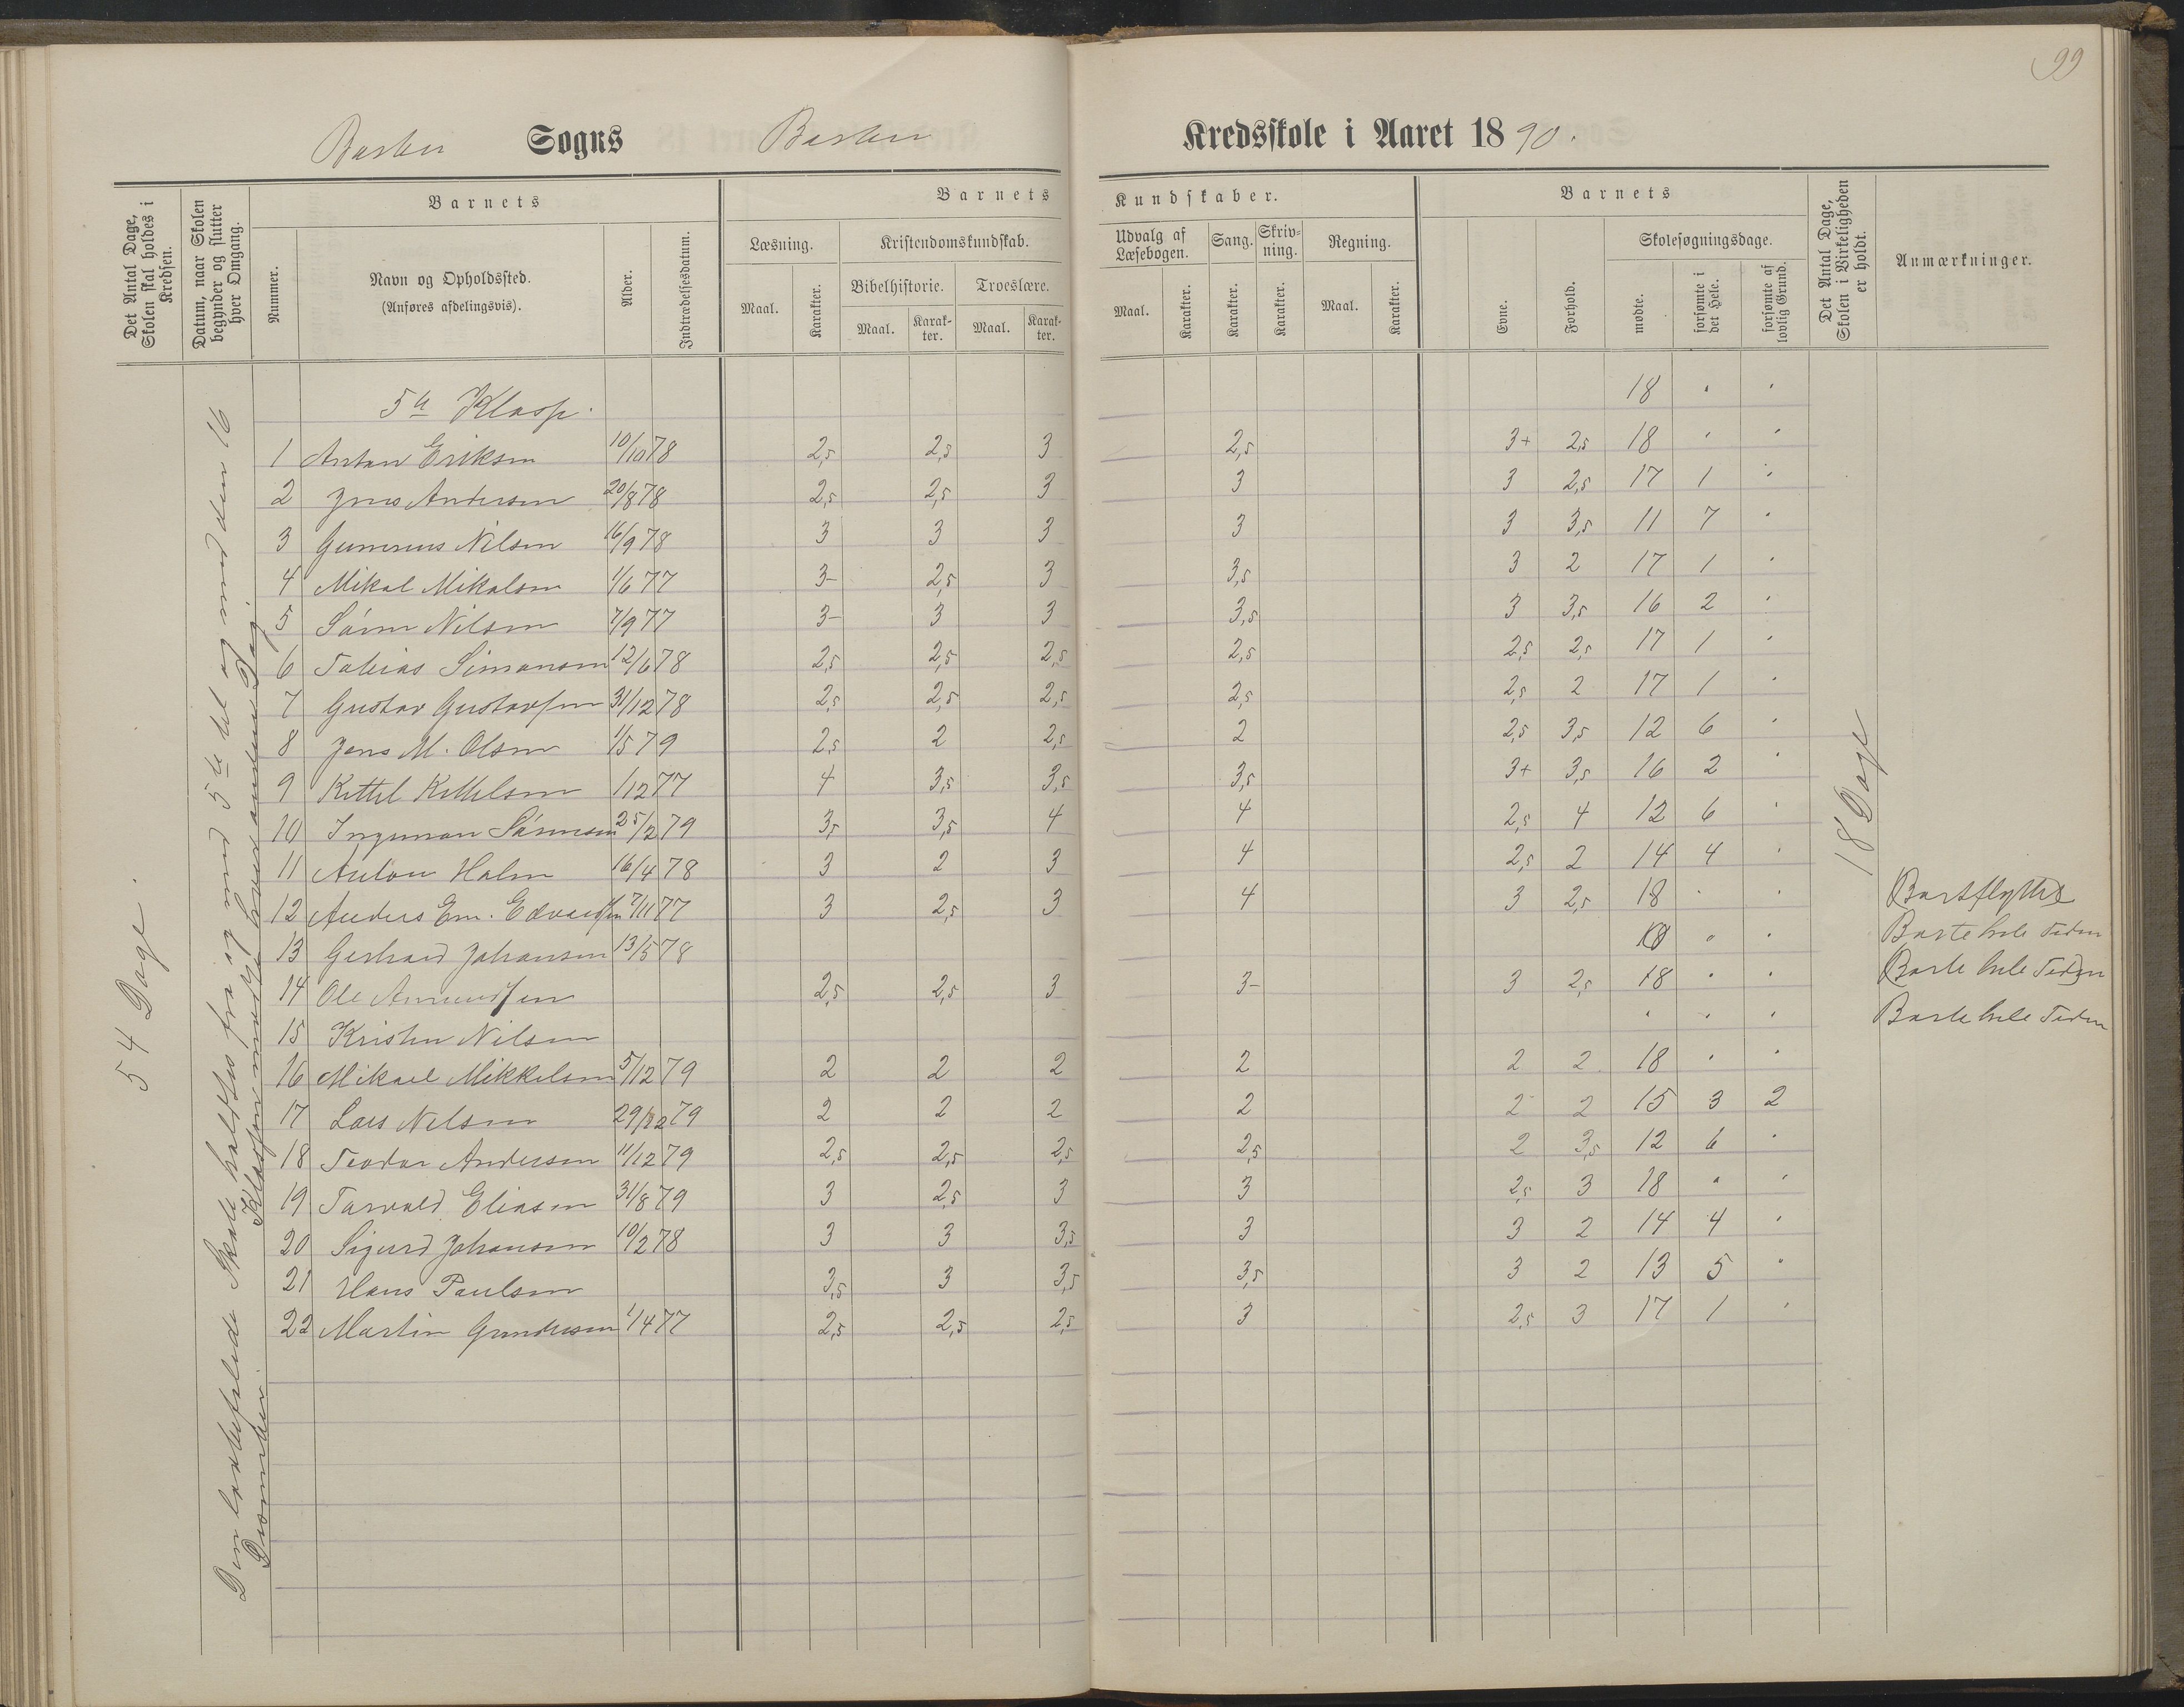 99
Barbu Sogns Barbu Kredsskole i Aaret 1890.
Det Antal Dage, Skolen skal holdes i Kredsen.
Datum, naar Skolen begynder og slutter hver Omgang.
Barnets
Nummer.
Navn og Opholdssted.
(Anføres afdelingsvis).
Alder.
Indtrædelsesdatum.
Barnets Kundskaber.
Læsning.
Maal. Karakter.
Kristendomskundskab.
Bibelhistorie. Troeslære.
Maal. Karak-ter. Maal. Karak-ter.
Udvalg af Læsebogen. Sang. Skriv-ning. Regning.
Maal. Karakter. Karakter. Karakter. Maal. Karakter.
Barnets
Evne. Forhold.
Skolesøgningsdage.
mødte. forsømte i det Hele. forsømte af lovlig Grund.
Det Antal Dage, Skolen i Virkeligheden er holdt.
Anmærkninger.
54 Dage.
Den lovbefalede Skole holdtes fra og med 5te til og med den 16
December. Klassen mødte hver anden Dag.
5te Klasse. 18 " "
1 Anton Eriksen 10/10 78 2,5 2,5 3 2,5 3+ 2,5 18 " "
2 Jens Andersen 20/8 78 2,5 2,5 3 3 3 2,5 17 1 "
3 Gunerius Nilsen 16/9 78 3 3 3 3 3 3,5 11 7 "
4 Mikal Mikalsen 1/6 77 3- 2,5 3 3,5 3 2 17 1 "
5 Søren Nilsen 7/9 77 3- 3 3 3,5 3 3,5 16 2 "
6 Tobias Simonsen 12/6 78 2,5 2,5 2,5 2,5 2,5 2,5 17 1 "
7 Gustav Gustavsen 31/12 78 2,5 2,5 2,5 2,5 2,5 2 17 1 "
8 Jens M. Olsen 1/5 79 2,5 2 2,5 2 2,5 3,5 12 6 "
9 Kittel Kittelsen /12 77 4 3,5 3,5 3,5 3+ 3,5 16 2 "
10 Ingeman Sørensen 25/2 79 3,5 3,5 4 4 2,5 4 12 6 "
11 Anton Holm 16/4 78 3 2 3 4 2,5 2 14 4 "
12 Anders Em. Edvardsen 7/11 77 3 2,5 3 4 3 2,5 18 " "
13 Gerhard Johansen 13/5 78 " " Bortflyttet
14 Ole Amundsen 2,5 2,5 3 3- 3 2,5 18 " " Borte hele Tiden
15 Kristen Nilsen " " " Borte hele Tiden
16 Mikael Mikkelsen 5/12 79 2 2 2 2 2 2 18 " " Borte hele Tiden
17 Lars Nilsen 29/12 79 2 2 2 2 2 2 15 3 2
18 Teodor Andersen 11/12 79 2,5 2,5 2,5 2,5 2 3,5 12 6 "
19 Torvald Eliasen 31/8 79 3 2,5 3 3 2,5 3 18 " "
20 Sigurd Johansen 10/2 78 3 3 3,5 3 3 2 14 4 "
21 Hans Paulsen 3,5 3 3,5 3,5 3 2 13 5 "
22 Martin Gundersen 1/4 77 2,5 2,5 2,5 3 2,5 3 17 1 "
18 Dage